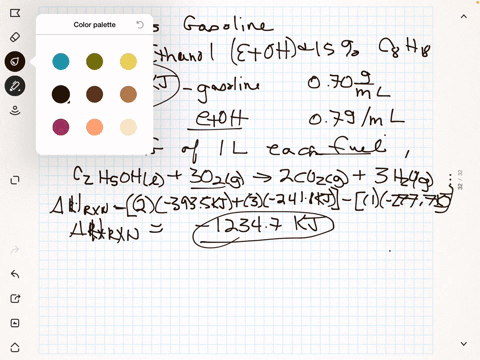 Color palette
s Gasoline
Ethanol (EtOH) 15% C8H18
KJ - gasoline 0.70 g/mL
etOH 0.79/mL
of 1L each fuel,
C2H5OH(l) + 3O2(g) → 2CO2(g) + 3H2O(g)
ΔH RXN = [(2)(-393.5KJ)+(3)(-241.8KJ)]-[(1)(-277.7
ΔH RXN = -1234.7 KJ
32 / 32